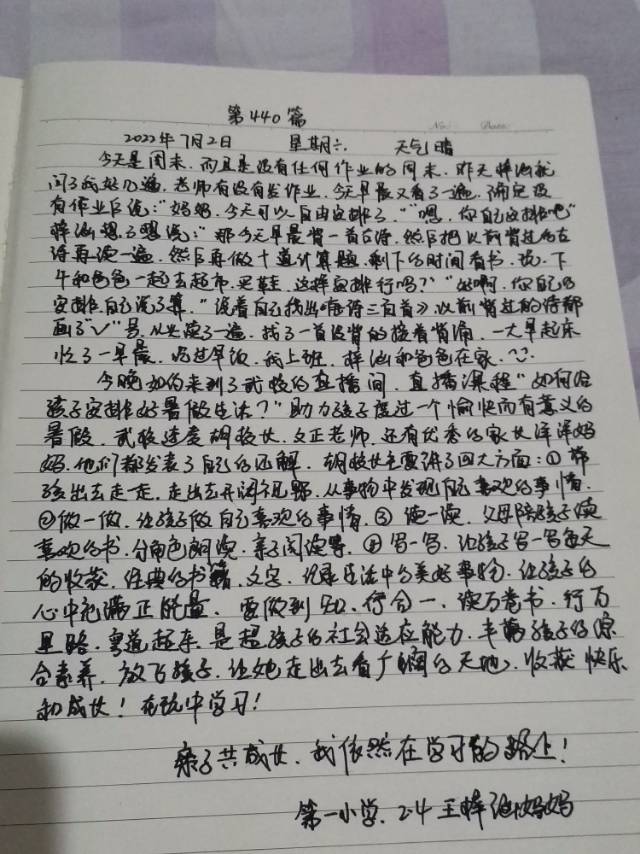 第440篇
No. Date.
2022年7月2日 星期六 天气晴
今天是周末,而且是没有任何作业的周末,昨天梓涵就
问了我好几遍,老师有没有发作业,今早晨又看了一遍,确定没
有作业后说:“妈妈,今天可以自由安排了。”“嗯,你自己安排吧”
梓涵想了想说:“那今天早晨背一首古诗,然后把以前背过的古
诗再读一遍,然后再做十道计算题,剩下的时间看书,说,下
午和爸爸一起去超市,买鞋,这样安排行吗?”“好啊,你自己的
安排自己说了算。”说着自己找出唐诗三百首》,以前背过的诗都
画了“√”号,从头读了一遍,找了一首没背的接着背诵,一大早起床
忙了一早晨,吃过早饭,我上班,梓涵和爸爸在家。
今晚如约来到了武校的直播间,直播课程“如何给
孩子安排好暑假生活?”助力孩子度过一个愉快而有意义的
暑假,武校连麦胡校长,文正老师,还有优秀的家长洋洋妈
妈,他们都发表了自己的见解,胡校长主要讲了四大方面:①带
孩出去走一走,走出去开阔视野,从事物中发现自己喜欢的事情,
②做一做,让孩子做自己喜欢的事情,③读一读,父母陪孩子读
喜欢的书,分角色朗读,亲子阅读等,④写一写,让孩子写一写每天
的收获,经典的书籍,文字,记录生活中的美好事物,让孩子的
心中充满正能量,要做到知、行合一,读万卷书,行万
里路,
是
孩子的社会适应能力,丰富孩子的综
合素养,放飞孩子,让她走出去看广阔的天地,收获快乐
和成长!在玩中学习!
亲子共成长,我依然在学习的路上!
第一小学,2.4王梓涵妈妈